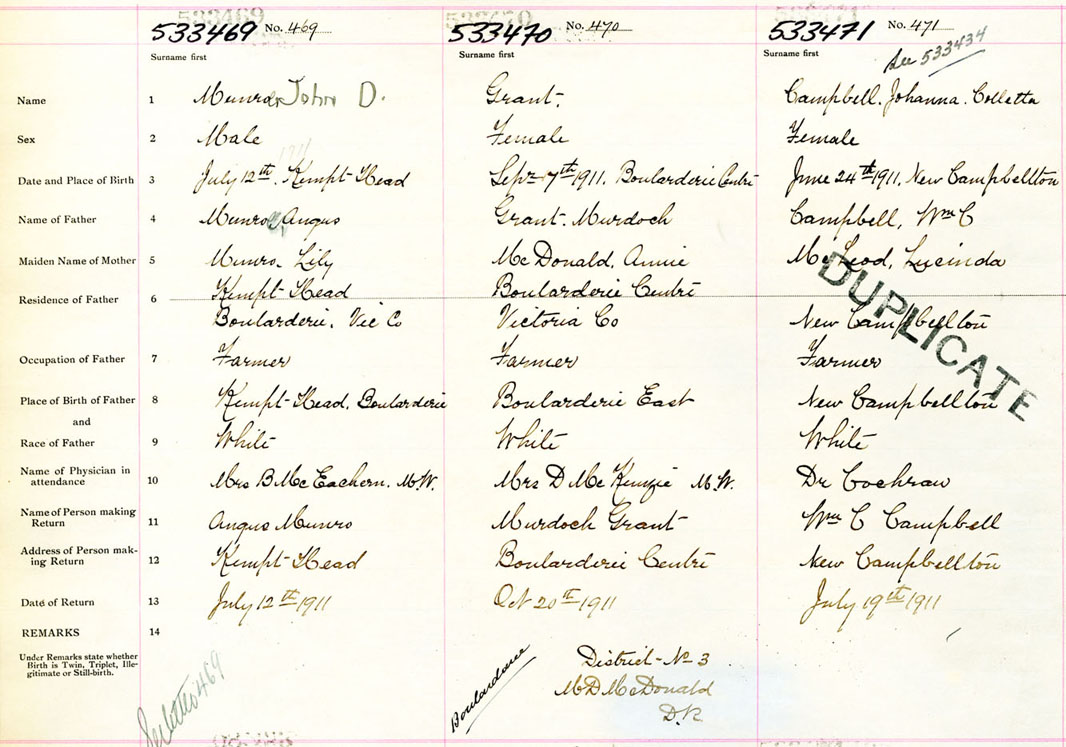 533469 No. 469 533470 No. 470 533471 No. 471
See 533434
Surname first Surname first Surname first
Name 1 Munro John D. Grant. Campbell. Johanna. Colletta
Sex 2 Male Female Female
Date and Place of Birth 3 July 12th. Kempt Head Sept 7th 1911. Boularderie Centre June 24th 1911, New Campbellton
Name of Father 4 Munro Angus Grant. Murdoch Campbell, Wm C
Maiden Name of Mother 5 Munro. Lily McDonald, Annie McLeod, Lucinda
Residence of Father 6 Kempt Head Boularderie Centre
Boularderie. Vic Co Victoria Co New Campbellton
DUPLICATE
Occupation of Father 7 Farmer Farmer Farmer
Place of Birth of Father 8 Kempt-Head. Boularderie Boularderie East New Campbellton
and
Race of Father 9 White White White
Name of Physician in
attendance 10 Mrs B McEachern. M.W. Mrs D McKenzie M.W. Dr Cochran
Name of Person making
Return 11 Angus Munro Murdoch Grant Wm C Campbell
Address of Person mak-
ing Return 12 Kempt Head Boularderie Centre New Campbellton
Date of Return 13 July 12th 1911 Oct 20th 1911 July 19th 1911
REMARKS 14
Under Remarks state whether
Birth is Twin, Triplet, Ille-
gitimate or Still-birth.
See letter 469
Boulardarie
District No 3
M D McDonald
D.R